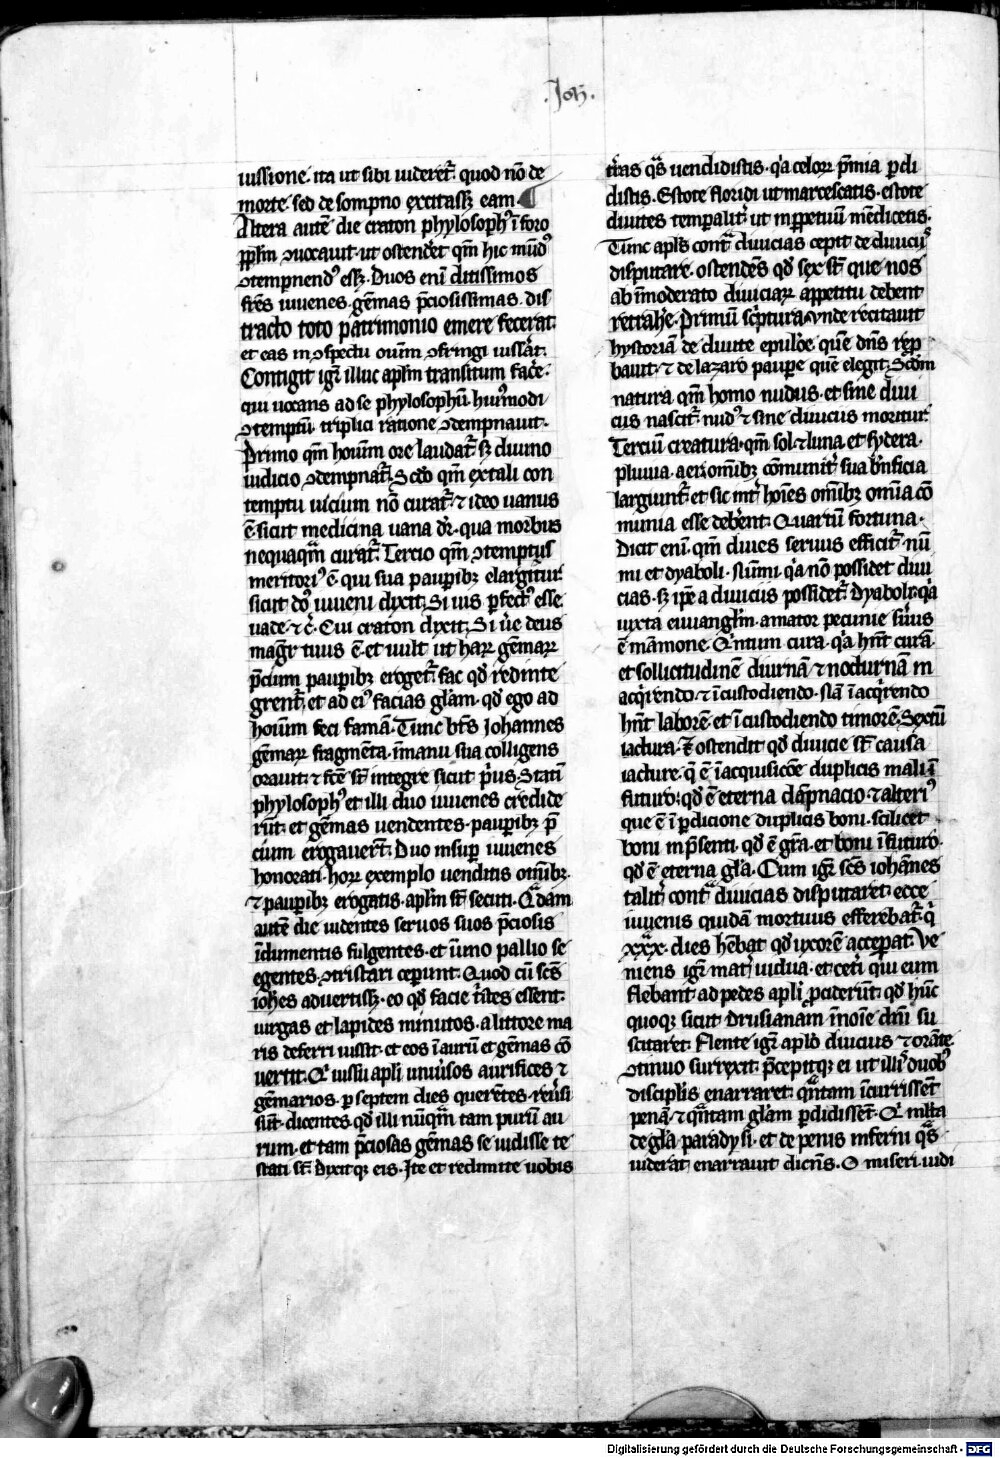 .Joh.
iussione. ita ut sibi uideret̃ quod nõ de
morte. sed de sompno excitassꝫ eam.
Altera autẽ die craton phylosophꝰ ĩ foro
pp̃lm ꝯuocauit. ut ostend̾et qm̃ hic mũdꝰ
ꝯtempnendꝰ essꝫ. Duos eni ditissimos
fr̃es iuuenes. gẽmas p̃ciosissimas. dis
tracto toto patrimonio emere fecerat.
et eas in ꝯspectu oĩum ꝯfringi iussat̾.
Contigit igr̃ illuc aplm transitum fac̾e.
qui uocans ad se phylosophũ. huiꝰmodi
ꝯtemptũ. triplici ratione ꝯdempnauit.
Primo qm̃ hoĩum ore laudat̃. sꝫ diuino
iudicio ꝯdempnat̃. Scdo qm̃ ex tali con
temptu uicium nõ curat̃. ⁊ ideo uanus
ẽ. sicut medicina uana dr̃. qua morbus
nequaqm̃ curat̃. Tercio qm̃ ꝯtemptus
meritoriꝰ ẽ qui sua pauꝑibꝫ elargitur.
sicut dꝰ iuueni dixit. Si uis ꝑfectꝰ esse.
uade. ⁊ c̃. Cui craton dixit. Si ue deus
magr̃ tuus ẽ. et uult ut haꝝ gẽmaꝝ
p̃cium pauꝑibꝫ eroget̃. fac qd̾ redinte
grent̃. et ad eiꝰ facias glam. qd̾ ego ad
hoĩum feci famã. Tunc bt̃s Johannes
gẽmaꝝ fragmẽta. ĩmanu sua colligens
orauit. ⁊ fc̃e st̃ integre sicut pus. Statĩ
phylosophꝰ et illi duo iuuenes credide
rũt. et gẽmas uendentes. pauꝑibꝫ p̃
cium erogauer̃t. Duo insuꝑ iuuenes
honorati. hoꝝ exemplo uenditis omĩbꝫ.
⁊ pauꝑibꝫ erogatis. aplm st̃ secuti. Qͣdam
autẽ die uidentes seruos suos p̃ciosis
ĩdumentis fulgentes. et ũno pallio se
egentes. ꝯtristari ceperunt. Quod cũ sc̃s
ioh̃es aduertissꝫ. eo qd̾ facie t̾stes essent.
uirgas et lapides minutos. a littore ma
ris deferri iussit. et eos ĩ aurũ et gẽmas cõ
uertit. Qͥ iussu apli uniũsos aurifices ⁊
gẽmarios. ꝑ septem dies querẽtes. reũsi
sũt. dicentes qd̾ illi nũqm̃ tam purũ au
rum. et tam p̃ciosas gẽmas se uidisse te
stati st̃. Dixitqꝫ eis. Jte et redimite uobis
t̾ras qͣs uendidistis. qͥa celoꝝ p̃mia ꝑdi
distis. Estote floridi ut marcescatis. estote
diuites temꝑalit̾. ut inꝑpetuũ mẽdicetis.
Tunc apls contͣ diuicias cepit de diuiciis
disputare. ostendẽs qd̾ sex st̃ que nos
ab ĩmoderato diuiciaꝝ appetitu debent
retrah̾e. Primũ sc̾ptura. Vnde recitauit
hystoriã de diuite epulõe. quẽ dñs rep
bauit. ⁊ de lazaro pauꝑe quẽ elegit. Scdm̃
natura qm̃ homo nudus. et sine diui
ciis nascit̃. nudꝰ ⁊ sine diuiciis moritur.
Terciũ creatura. qm̃ sol. ⁊ luna et sydera.
pluuia. aer omĩbꝫ cõmunit̾ sua bñficia
largiunt̃. et sic int̾ hoĩes omĩbꝫ omĩa cõ
munia esse deb̾ent. Quartũ fortuna.
Dicit eni. qm̃ diues seruus efficit̃. nũ
mi et dyaboli. Nũmi. qͥa nõ possidet diui
cias. sꝫ ip̃e a diuiciis possidet̃. Dyaboli. qͥa
iuxta euuanglm̃. amator pecunie s̃uus
ẽ mãmone. Qͥntum cura. qͥa hñt curã.
et sollicitudinẽ diurnã ⁊ nocturnã in
acqͥrendo. ⁊ ĩcustodiendo. Nã ĩ acqͥrendo
hñt laborẽ. et ĩ custodiendo timorẽ. Sextũ
iactura. ⁊ ostendit qd̾ diuicie st̃ causa
iacture. q̃ ẽ ĩ acquisicõe duplicis mali. ĩ
futuro. qd̾ ẽ eterna dãpnacio. ⁊ alteriꝰ
que ẽ ĩ ꝑdicione duplicis boni. scilicet
boni in p̃senti. qd̾ ẽ gr̃a. et boni ĩ futuro.
qd̾ ẽ eterna gl̃a. Cum igr̃ sc̃s iohãnes
talit̾ contͣ diuicias disputaret. ecce
iuuenis quidã mortuus efferebat̃. qͥ
xxx. dies h̾ebat qd̾ uxorẽ acceꝑat. Ve
niens igr̃ mat̾ uidua. et cet̾i qui eum
flebant. ad pedes apli ꝓciderũt. qd̾ hũc
quoqꝫ sicut drusianam ĩnoĩe dñi su
scitaret. Flente igr̃ aplo diucius ⁊ orãte.
ꝯtinuo surrexit. p̃cepitqꝫ ei ut illis duobꝰ
disciplis enarraret. qͣntam ĩcurrissẽt
penã. ⁊ qͣntam gl̃am ꝑdidissẽt. Qͥ mĺta
de gl̃a paradysi. et de penis inferni qͣs
uiderat. enarrauit dicñs. O miseri. uidi
Digitalisierung gefördert durch die Deutsche Forschungsgemeinschaft - DFG